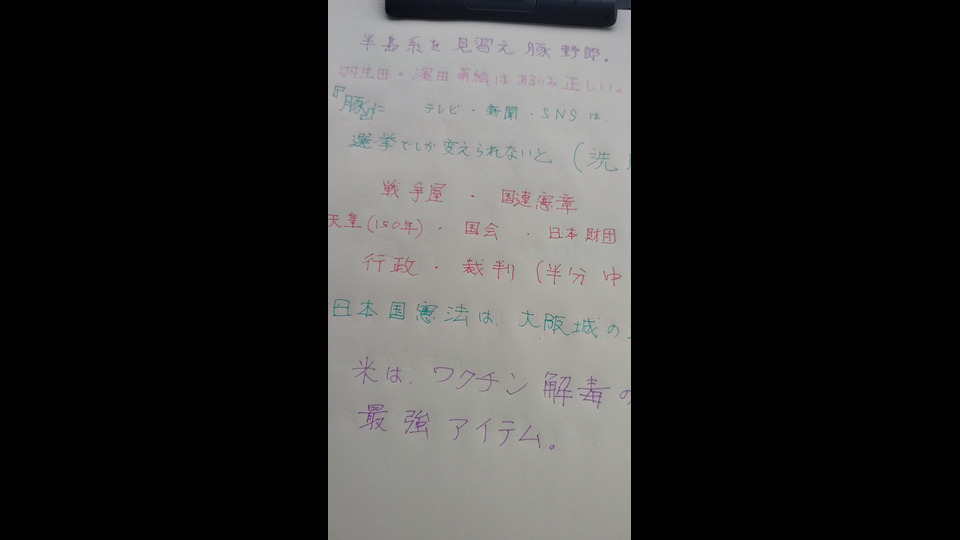 半島系を見習え豚野郎。
羽生田・深田萌絵はある意味正しい。
『豚』に テレビ・新聞・SNSは、
選挙でしか変えられないと (洗
戦争屋 ・ 国連憲章
天皇(150年)・国会 ・日本財団
行政・裁判(半分中
日本国憲法は、大阪城の
米は、ワクチン解毒の
最強アイテム。